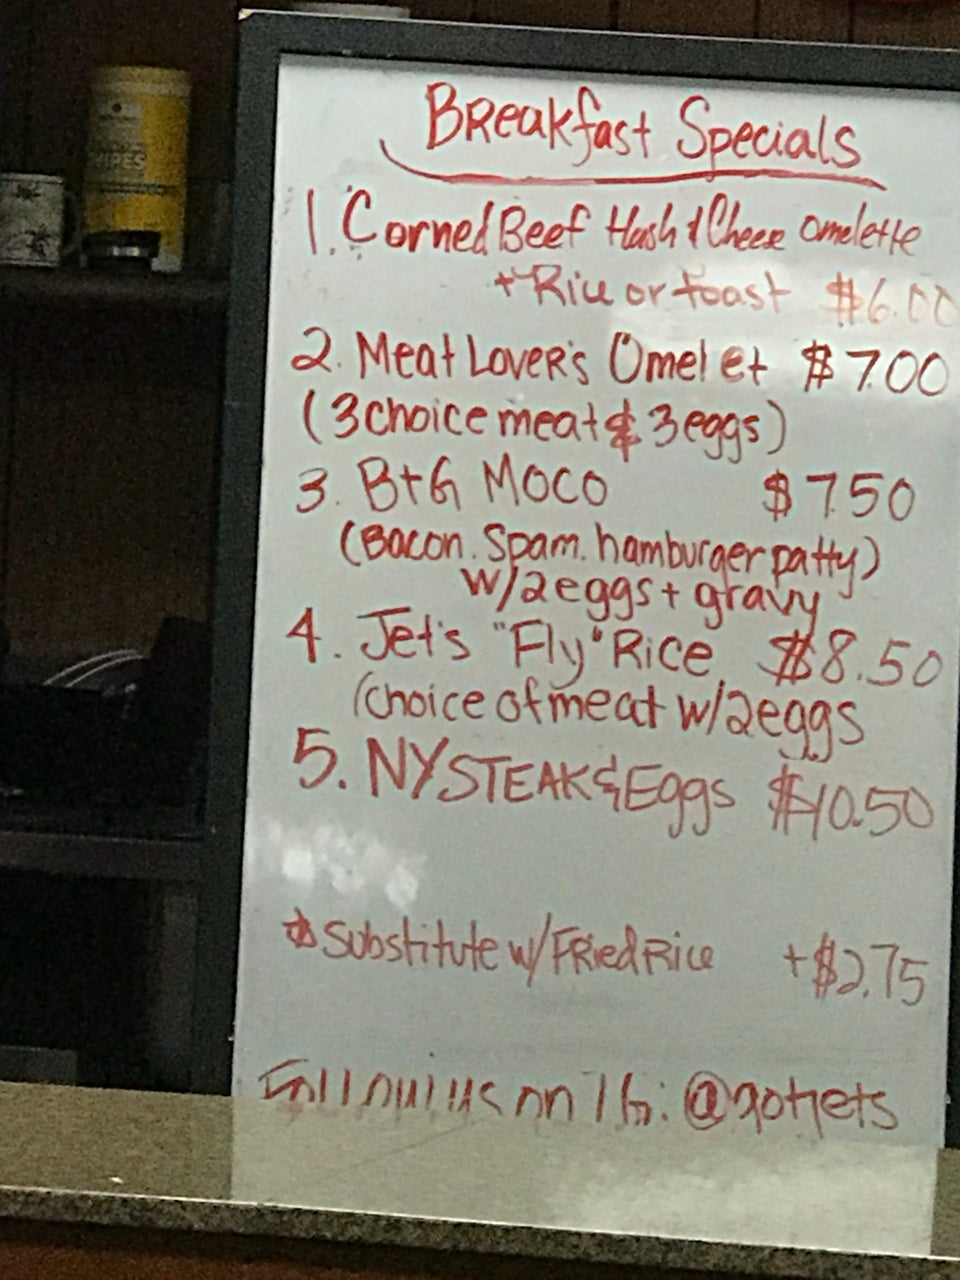 WIPES
Breakfast Specials
1. Corned Beef Hash & Cheese omelette
+ Rice or toast $6.00
2. Meat Lover's Omelet $7.00
(3 choice meat & 3 eggs)
3. B+G Moco $7.50
(Bacon. Spam. hamburger patty)
w/ 2 eggs + gravy
4. Jet's "Fly" Rice $8.50
(choice of meat w/ 2 eggs
5. NY STEAK & Eggs $10.50
* Substitute w/ Fried Rice + $2.75
Follow us on IG: